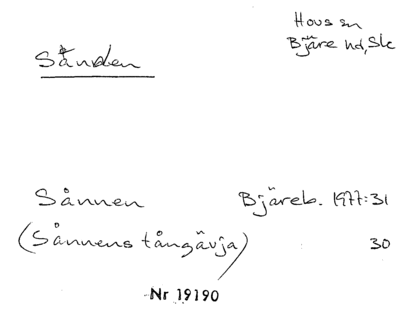 Hovs sn
Bjäre hd, Sk
Sånden
Sånnen Bjäreb. 1977:31
(Sånnens tångävja) 30
Nr 19190